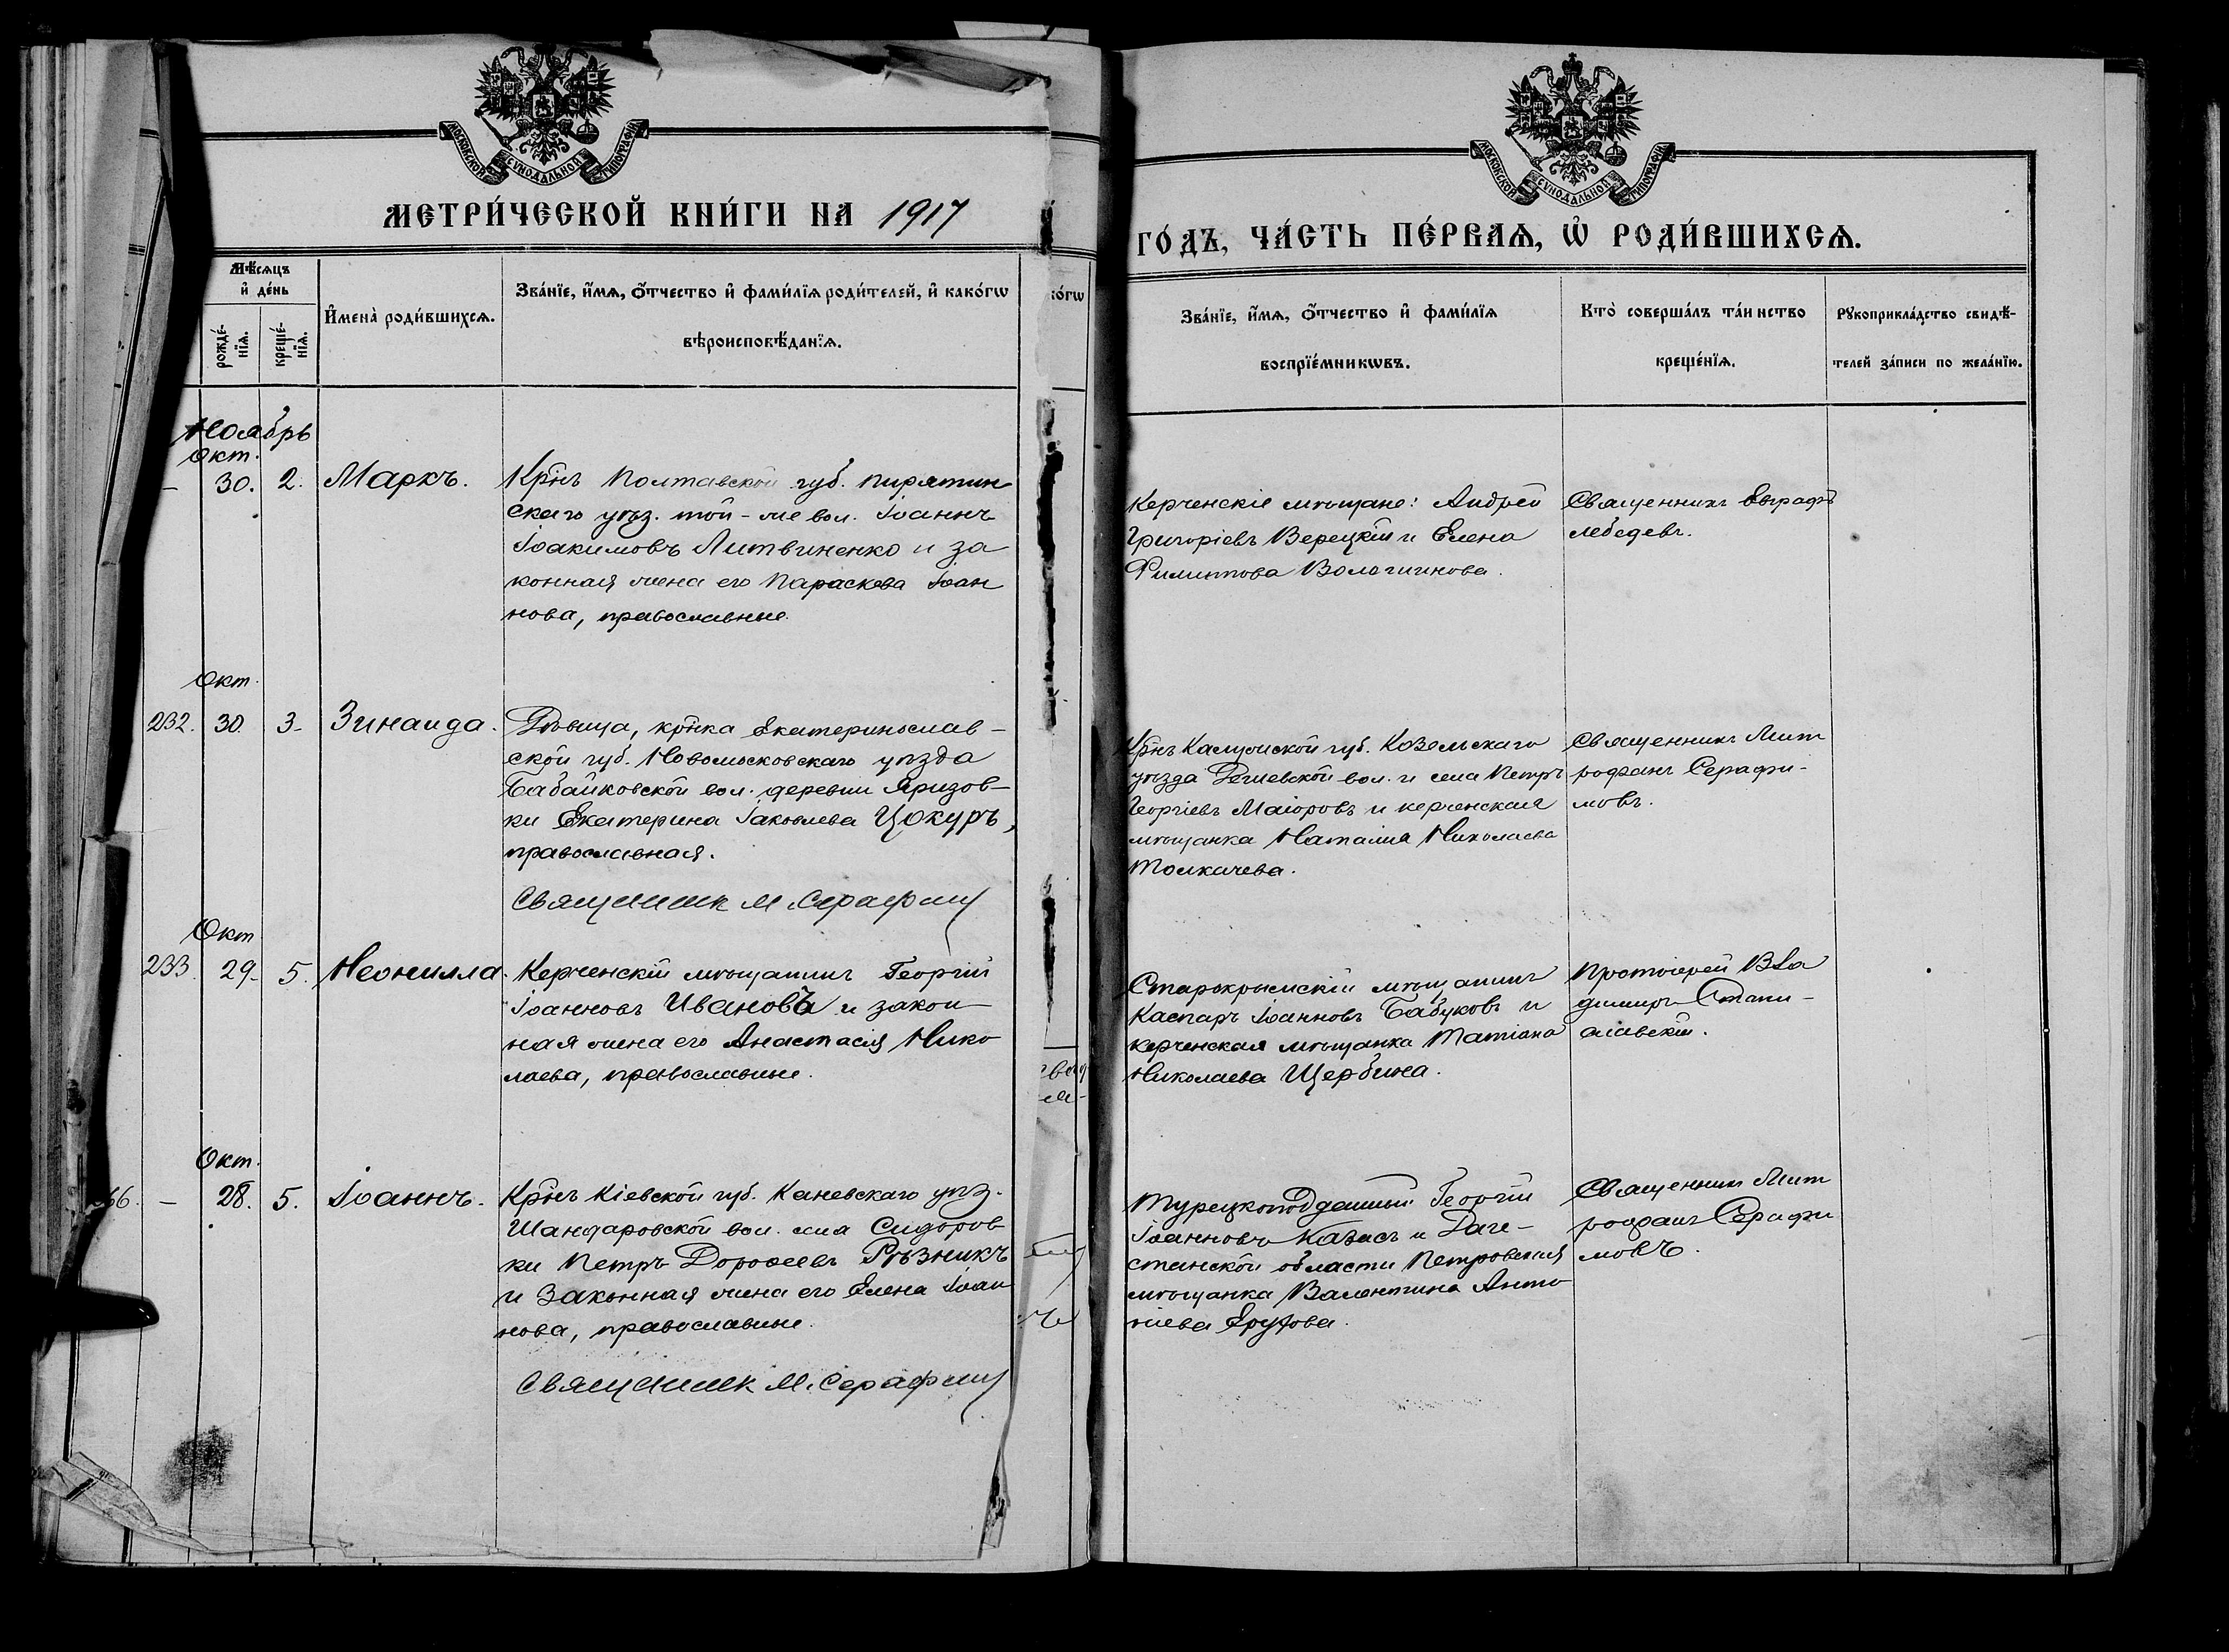 МОСКОВСКОЙ СѴНОДАЛЬНОЙ ТИПОГРАФІИ
МЕТРИ́ЧЕСКОЙ КНИ́ГИ НА 1917
Мѣ́сяцъ
и҆ де́нь
рожде́-
нїѧ.
креще́-
нїѧ.
И҆мена̀ роди́вшихсѧ.
Зва́нїе, и҆́мѧ, ѻ҆́тчество и҆ фами́лїѧ роди́телей, и҆ како́гѡ
вѣроисповѣ́данїѧ.
Ноябрь
Окт.
– 30. 2. Маркъ.
Крнъ Полтавской губ. Пирятин
скаго уѣз. той-же вол. Іоаннъ
Іоакимовъ Литвиненко и за
конная жена его Параскева Іоан
нова, православные.
Окт.
232. 30. 3- Зинаида.
Дѣвица, крнка Екатеринослав-
ской губ. Новомосковскаго уѣзда
Бабайковской вол. деревни Яризов-
ки Екатерина Іаковлева Цокуръ,
православная.
Священник М. Серафим
Окт
233. 29- 5. Неонилла.
Керченскій мѣщанинъ Георгій
Іоанновъ Ивановъ и закон-
ная жена его Анастасія Нико
лаева, православные.
Окт.
– 28. 5. Іоаннъ.
Крнъ Кіевской губ. Каневскаго уѣз.
Шандаровской вол. села Сидоров
ки Петръ Дороѳеевъ Рѣзникъ
и законная жена его Елена Іоан
нова, православные.
Священник М. Серафим
МОСКОВСКОЙ СѴНОДАЛЬНОЙ ТИПОГРАФІИ
ГО́ДЪ, ЧА́СТЬ ПЕ́РВАѦ, Ѡ҆ РОДИ́ВШИХСѦ.
Зва́нїе, и҆́мѧ, ѻ҆́тчество и҆ фами́лїѧ
воспрїе́мникѡвъ.
Кто̀ соверша́лъ та́инство
креще́нїѧ.
Рꙋкоприкла́дство свидѣ́-
телей за́писи по жела́нїю.
Керченскіе мѣщане: Андрей
Григоріевъ Верецкій и Елена
Филиппова Вологиннова.
Священникъ Евграфъ
Лебедевъ.
Крнъ Калужской губ. Козельскаго
уѣзда вол. и села Петръ
Георгіевъ Маіоровъ и керченская
мѣщанка Наталія Николаева
Толкачева.
Священникъ Мит
рофанъ Серафи-
мовъ.
Старокрымскій мѣщанинъ
Каспаръ Іоанновъ Бабуковъ и
керченская мѣщанка Татіана
Николаева Щербина.
Протоіерей Вла
диміръ Стани-
славскій.
Турецкоподданный Георгій
Іоанновъ Казасъ и Даге-
станской области Петровская
мѣщанка Валентина Анто
ніева
Священникъ Мит
рофанъ Серафи
мовъ.